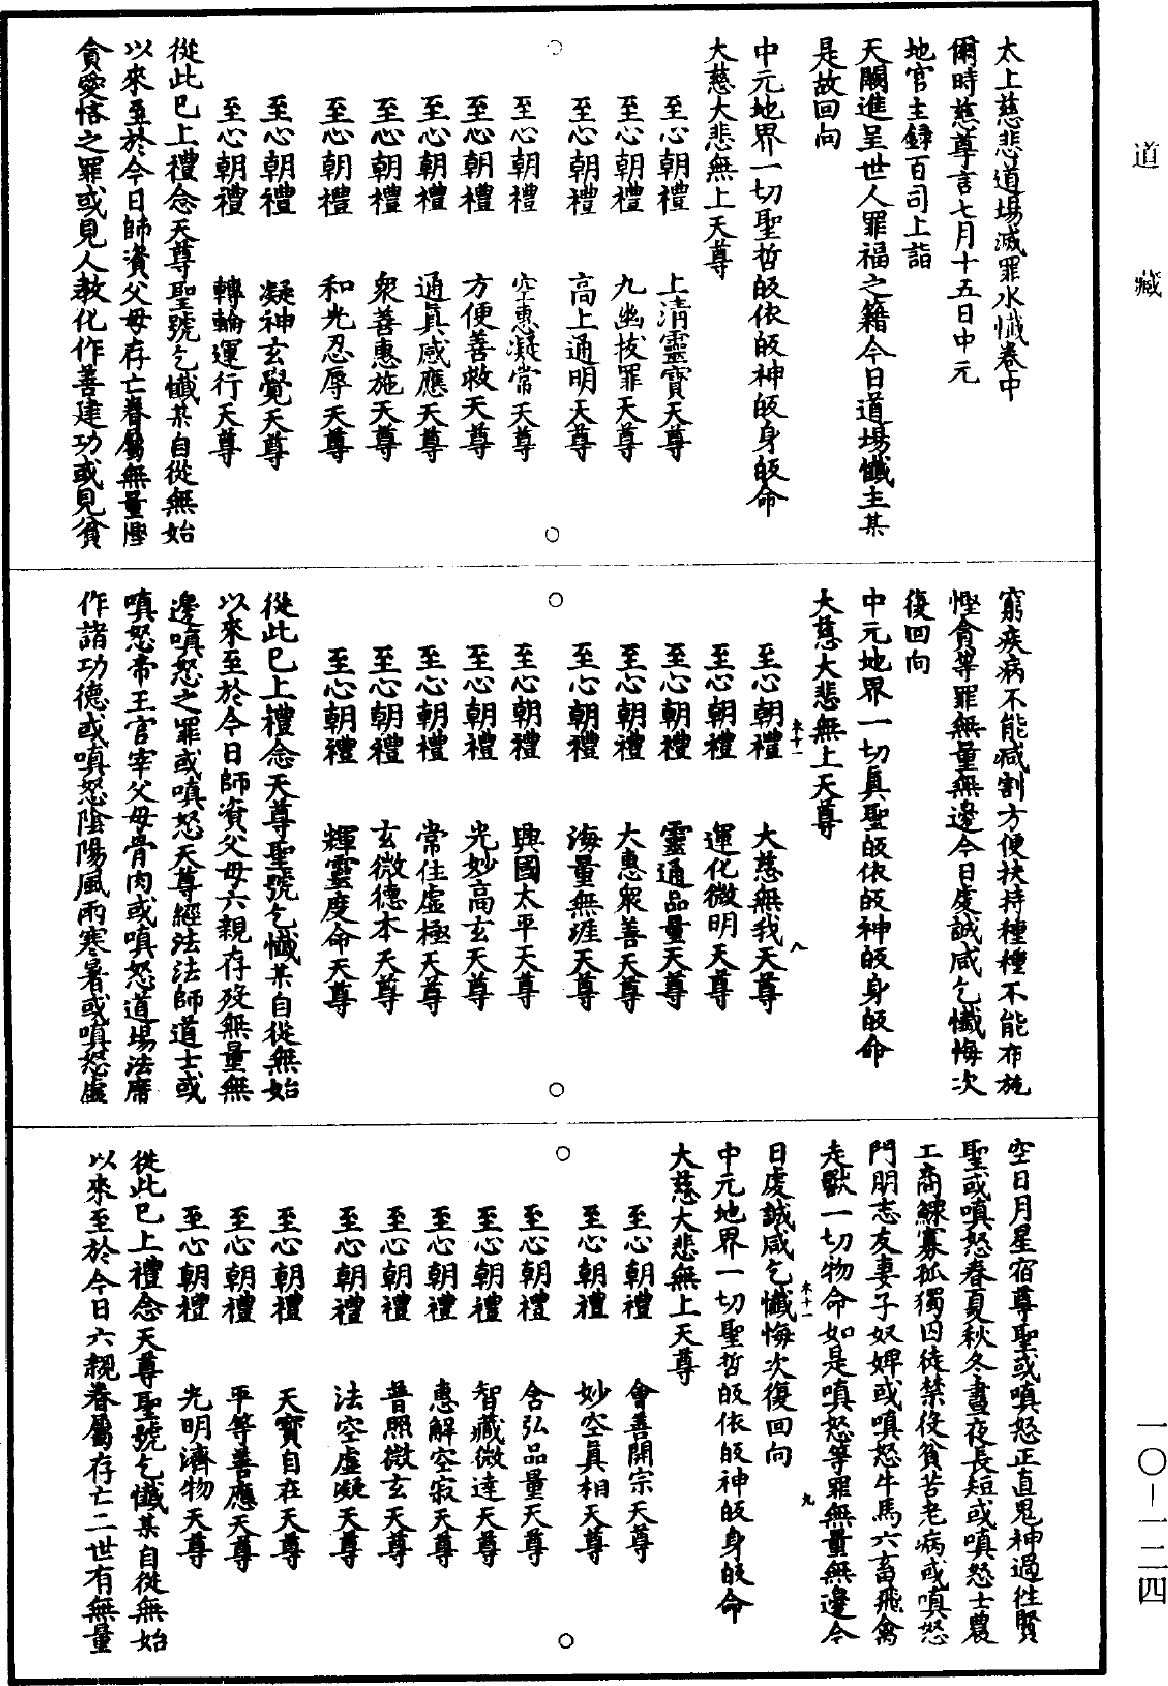 道藏
太上慈悲道場滅罪水懺卷中
爾時慈尊言七月十五日中元
地官主錄百司上詣
天闕進呈世人罪福之籍今日道場懺主某
是故回向
中元地界一切聖哲皈依皈神皈身皈命
大慈大悲無上天尊
至心朝禮 上清靈寶天尊
至心朝禮 九幽拔罪天尊
至心朝禮 高上通明天尊
至心朝禮 空惠凝常天尊
至心朝禮 方便善救天尊
至心朝禮 通眞感應天尊
至心朝禮 衆善惠施天尊
至心朝禮 和光忍辱天尊
至心朝禮 凝神玄覺天尊
至心朝禮 轉輪運行天尊
從此已上禮念天尊聖號乞懺某自從無始
以來至於今日師資父母存亡眷屬無量慳
貪愛悋之罪或見人教化作善建功或見貧
窮疾病不能減割方便扶持種種不能布施
慳貪等罪無量無邊今日虔誠咸乞懺悔次
復回向
中元地界一切眞聖皈依皈神皈身皈命
大慈大悲無上天尊
未十一 八
至心朝禮 大慈無我天尊
至心朝禮 運化微明天尊
至心朝禮 靈通品量天尊
至心朝禮 大惠衆善天尊
至心朝禮 海量無涯天尊
至心朝禮 興國太平天尊
至心朝禮 光妙高玄天尊
至心朝禮 常住虛極天尊
至心朝禮 玄微德本天尊
至心朝禮 輝靈度命天尊
從此已上禮念天尊聖號乞懺某自從無始
以來至於今日師資父母六親存殁無量無
邊嗔怒之罪或嗔怒天尊經法法師道士或
嗔怒帝王官宰父母骨肉或嗔怒道場法席
作諸功德或嗔怒陰陽風雨寒暑或嗔怒虛
空日月星宿尊聖或嗔怒正直鬼神過往賢
聖或嗔怒春夏秋冬晝夜長短或嗔怒士農
工商鰥寡孤獨囚徒禁役貧苦老病或嗔怒
門朋志友妻子奴婢或嗔怒牛馬六畜飛禽
走獸一切物命如是嗔怒等罪無量無邊今
未十一 九
日虔誠咸乞懺悔次復回向
中元地界一切聖哲皈依皈神皈身皈命
大慈大悲無上天尊
至心朝禮 會善開宗天尊
至心朝禮 妙空眞相天尊
至心朝禮 含弘品量天尊
至心朝禮 智藏微達天尊
至心朝禮 惠解空寂天尊
至心朝禮 普照微玄天尊
至心朝禮 法空虛凝天尊
至心朝禮 天寶自在天尊
至心朝禮 平等善應天尊
至心朝禮 光明濟物天尊
從此已上禮念天尊聖號乞懺某自從無始
以來至於今日六親眷屬存亡二世有無量
一〇-一二四